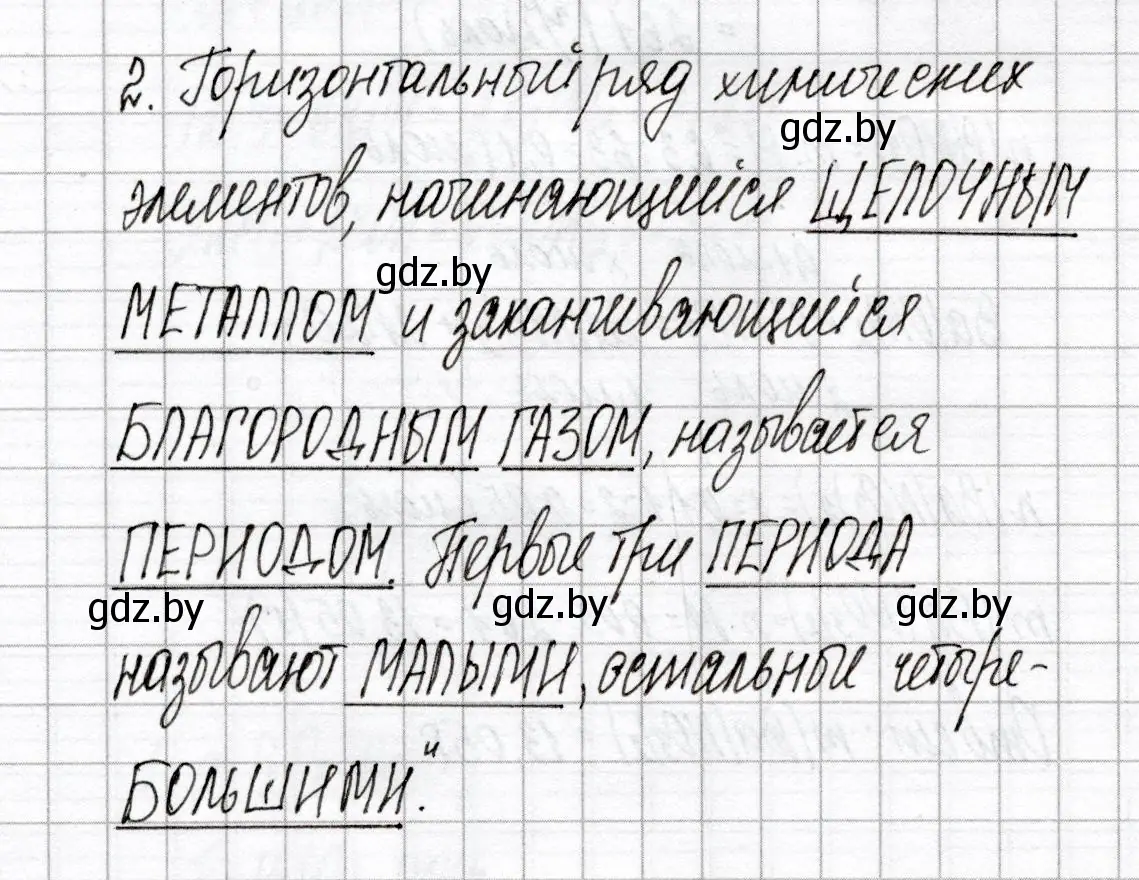 2. Горизонтальный ряд химических
gdz.by
элементов, начинающийся ЩЕЛОЧНЫМ
gdz.by
МЕТАЛЛОМ и заканчивающийся
БЛАГОРОДНЫМ ГАЗОМ, называется
ПЕРИОДОМ. Первые три ПЕРИОДА
gdz.by gdz.by gdz.by
называют МАЛЫМИ, остальные четыре-
БОЛЬШИМИ."